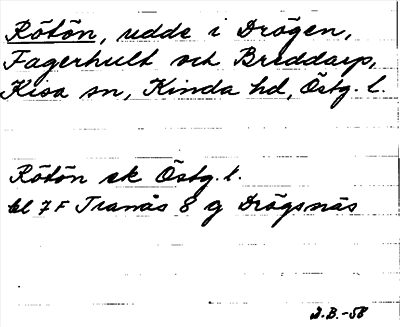 Rötön, udde i Drögen,
Fagerhult och Breddarp,
Kisa sn, Kinda hd, Östg. l.
Rötön ek Östg. l.
bl 7 F Tranås 8 g Drögsnäs
D.B.-58